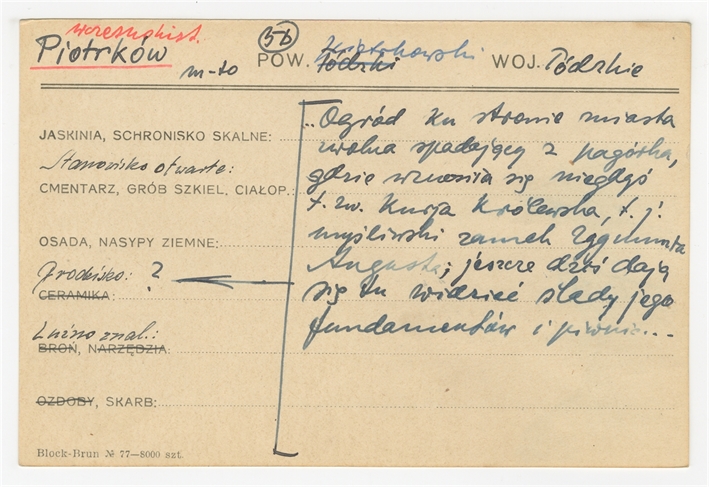 wczesnohist.
Piotrków
m-to
5b
POW. Piotrkowski
Łódzki
WOJ. Łódzkie
JASKINIA, SCHRONISKO SKALNE:
Stanowisko otwarte:
CMENTARZ, GRÓB SZKIEL. CIAŁOP.:
OSADA, NASYPY ZIEMNE:
Grodzisko: ?
CERAMIKA:
Luźno znal.:
BROŃ, NARZĘDZIA:
OZDOBY, SKARB:
„Ogród ku stronie miasta
wolna spadający z pagórka,
gdzie wznosiła się niegdyś
t. zw. Kurja Królewska, t. j.
myśliwski zamek Zygmunta
Augusta; jeszcze dziś dają
się tu widzieć ślady jego
fundamentów i piwnic...
Block-Brun № 77—8000 szt.